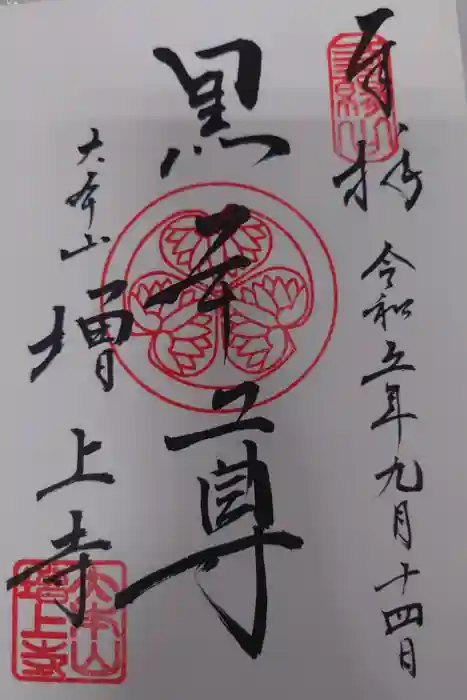 奉拝
三縁山
令和五年九月十四日
黒本尊
大本山
増上寺
大本山
増上寺